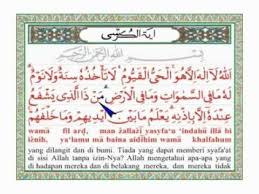 اية الكرسي
بسم الله الرحمن الرحيم
اَللهُ لَآ اِلٰهَ اِلَّا هُوَ الْحَيُّ الْقَيُّوْمُ لَا تَأْخُذُهٗ سِنَةٌ وَّلَا نَوْمٌ
لَهٗ مَا فِى السَّمٰوَاتِ وَمَا فِى الْاَرْضِ مَنْ ذَا الَّذِيْ يَشْفَعُ
عِنْدَهٗ اِلَّا بِاِذْنِهٖ يَعْلَمُ مَا بَيْنَ اَيْدِيْهِمْ وَمَا خَلْفَهُمْ
wamā fil arḍ, man żallażī yasyfa'u 'indahū illā bi
iżnih. ya'lamu mā baina aidīhim wamā khalfahum
yang dilangit dan di bumi. Tiada yang dapat memberi syafa'at
di sisi Allah tanpa izin-Nya? Allah mengetahui apa-apa yang
di hadapan mereka dan di belakang mereka, dan mereka tidak